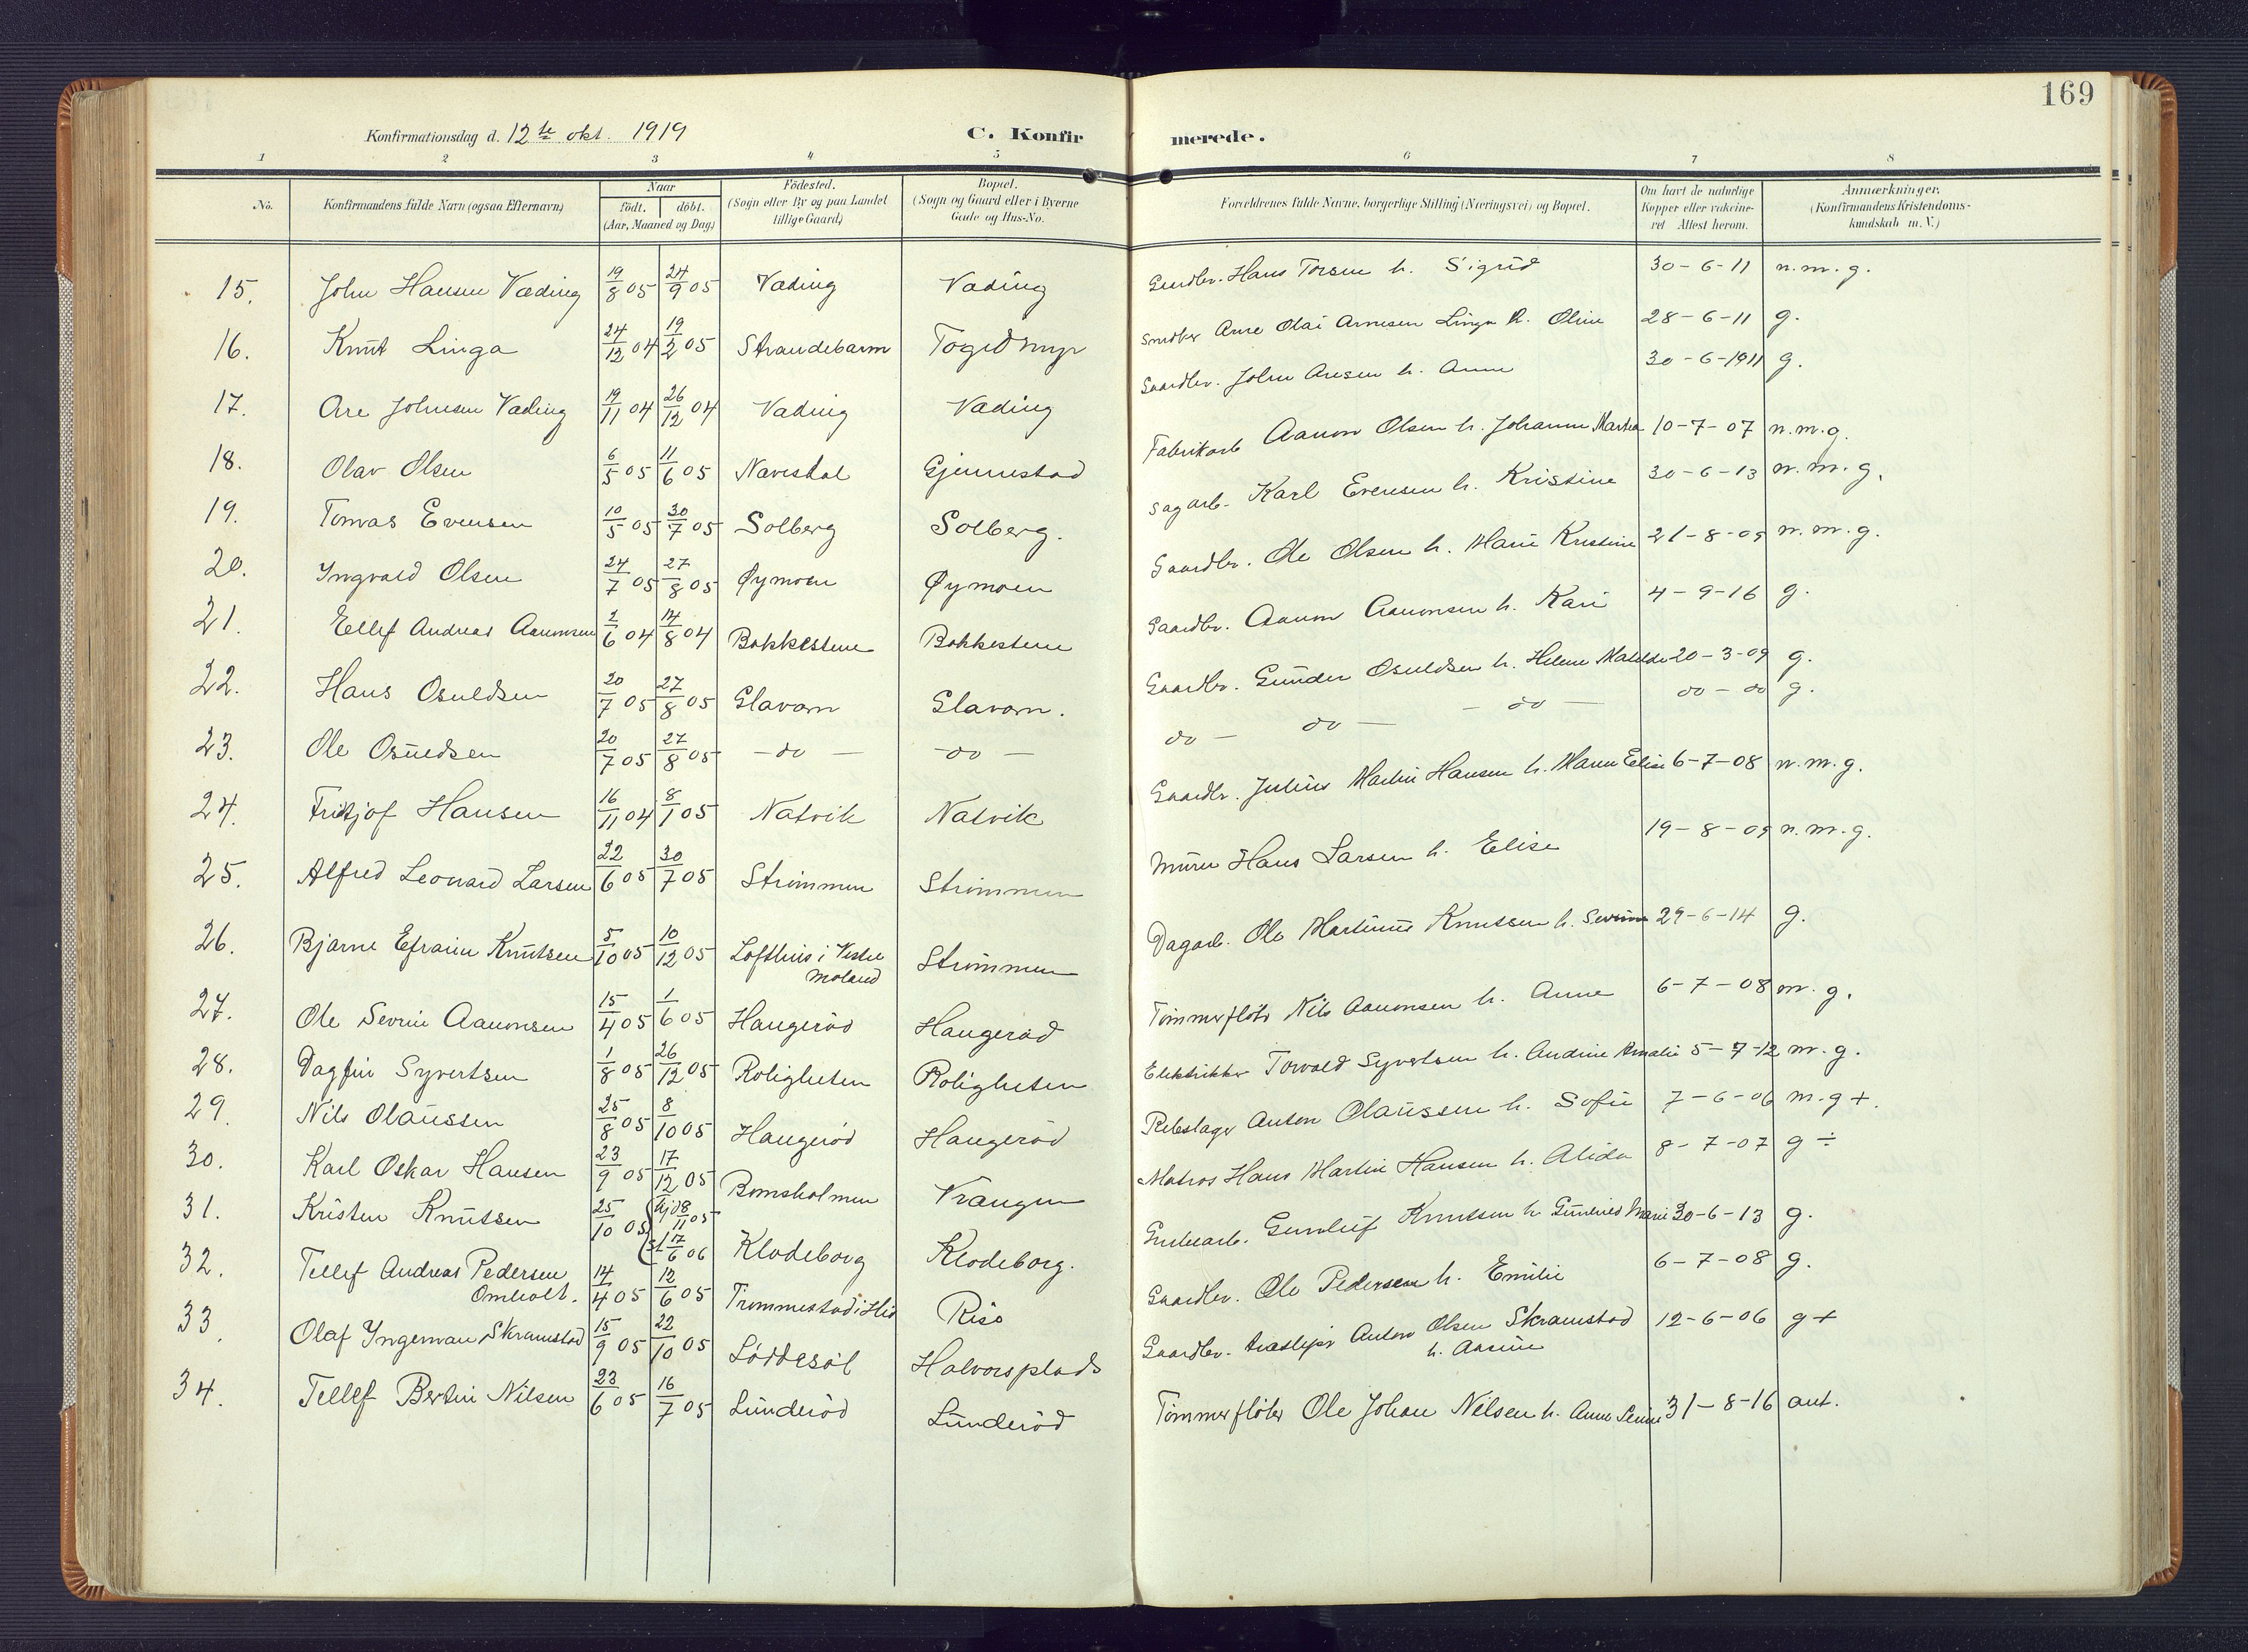 169
Konfirmationsdag d. 12te okt. 1919 C. Konfirmerede.
1 2 3 4 5 6 7 8
No. Konfirmandens fulde Navn (ogsaa Efternavn) Naar født. døbt. (Aar, Maaned og Dag) Fødested. (Sogn eller By og paa Landet tillige Gaard) Bopæl. (Sogn og Gaard eller i Byerne Gade og Hus-No. Forældrenes fulde Navne, borgerlige Stilling (Næringsvei) og Bopæl. Om havt de naturlige Kopper eller vakcineret Attest herom. Anmærkninger. (Konfirmandens Kristendomskundskab m. V.)
15. John Hansen Væding 19/8 05 24/9 05 Væding Væding Hans Torsen h. Sigrid 30-6-11 n.m.g.
16. Knut Linga 24/12 04 19/2 05 Strandebarm Arne Olai Arnesen Linga h. Oline 28-6-11 g.
17. Are Johnsen Væding 19/11 04 26/12 04 Væding Væding Gaardbr. John Aresen h. Anne 30-6-1911 g.
18. Olav Olsen 6/5 05 11/6 05 Navestal Gjennestad Fabrikarb Aanon Olsen h. Johanne Marthea 10-7-07 n.m.g.
19. Tomas Evensen 10/5 05 30/7 05 Solberg Solberg. Sagarb. Karl Evensen h. Kristine 30-6-13 n.m.g.
20. Yngvald Olsen 24/7 05 27/8 05 Øymoen Øymoen Gaardbr. Ole Olsen h. Marie Kristine 21-8-09 n.m.g.
21. Ellef Andreas Aanonsen 2/6 04 14/8 04 Bakkestene Bakkestene Gaardbr. Aanon Aanonsen h. Kari 4-9-16 g.
22. Hans Osuldsen 20/7 05 27/8 05 Glavarn Glavarn. Gaardbr. Gunder Osuldsen h. Helene Matilde 20-3-09 g.
23. Ole Osuldsen 20/7 05 27/8 05 - do - - do - do - do - - do - do - do g.
24. Fritjof Hansen 16/11 04 8/1 05 Natvik Natvik Gaardbr. Julius Martin Hansen h. Maren Elise 6-7-08 n.m.g.
25. Alfred Leonard Larsen 22/6 05 30/7 05 Strømmen Strømmen Murer Hans Larsen h. Elise 19-8-09 n.m.g.
26. Bjarne Efraim Knutsen 5/10 05 10/12 05 Lofthus i Vestre Moland Strømmen Dagarb. Ole Martinus Knutsen h. Severine 29-6-14 g.
27. Ole Severin Aanonsen 15/4 05 1/6 05 Haugerød Haugerød Tømmerfløter Nils Aanonsen h. Anne 6-7-08 m.g.
28. Dagfin Syvertsen 1/8 05 26/12 05 Roligheten Roligheten Elektrikker Torvald Syvertsen h. Andrine Amalie 5-7-12 m.g.
29. Nils Olaussen 25/8 05 8/10 05 Haugerød Haugerød Rebslager Anton Olaussen h. Sofie 7-6-06 m.g+.
30. Karl Oskar Hansen 23/9 05 17/12 05 Bomsholmen Vrangen Matros Hans Martin Hansen h. Alida 8-7-07 g ÷
31. Kristen Knutsen 25/10 05 (hj 08/11 05 st 17/6 06 Klodeborg Klodeborg. Grubearb. Gunleif Knutsen h. Marie 30-6-13 g.
32. Tellef Andreas Pedersen Omholt. 14/4 05 12/6 05 Trommestad i His Risø Gaardbr. Ole Pedersen h. Emilie 6-7-08 g.
33. Olaf Yngeman Skramstad 15/9 05 22/10 05 Løddesøl Halvorsplads Gaardbr. Anton Olsen Skramstad h. Aasine 12-6-06 g+
34. Tellef Bertin Nilsen 23/6 05 16/7 05 Lunderød Lunderød Tømmerfløter Ole Johan Nilsen h. Anne 31-8-16 ant.